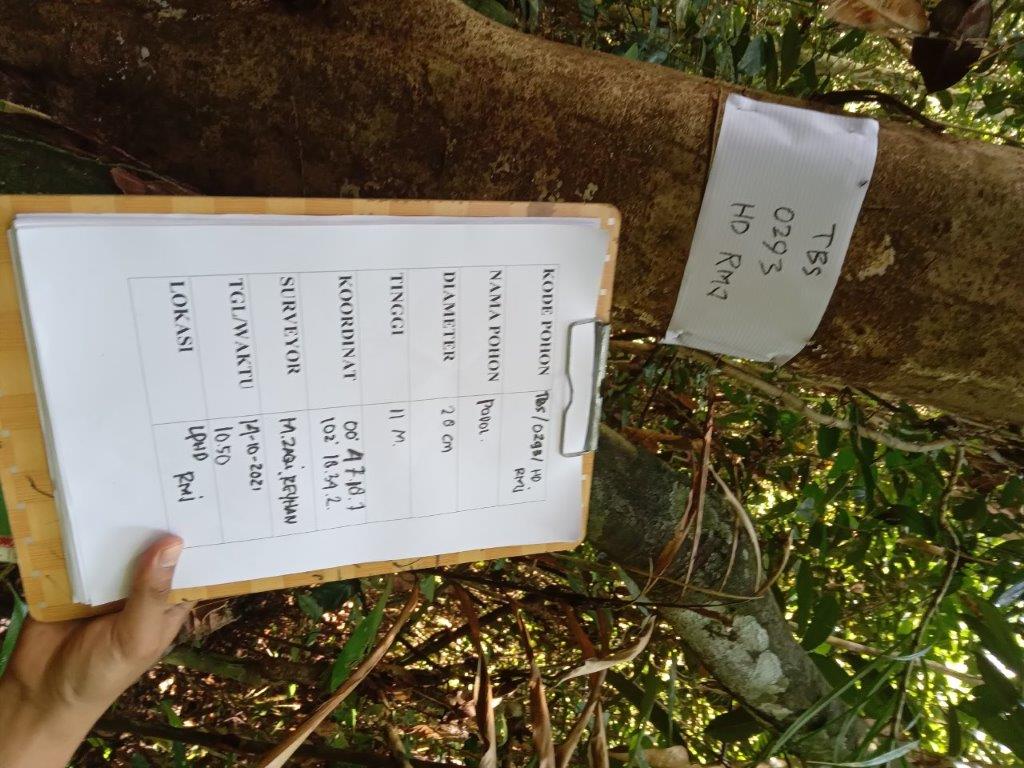 TBS
0293
HD RMJ
KODE POHON TBS/0293/ HD
RMJ
NAMA POHON PODOL.
DIAMETER 28 cm
TINGGI 11 M.
KOORDINAT 00' 47.18.7
102' 18.34.2.
SURVEYOR M.ZAQI, REYHAN
TGL/WAKTU 14-10-2021
10.50
LOKASI LPHD RMJ